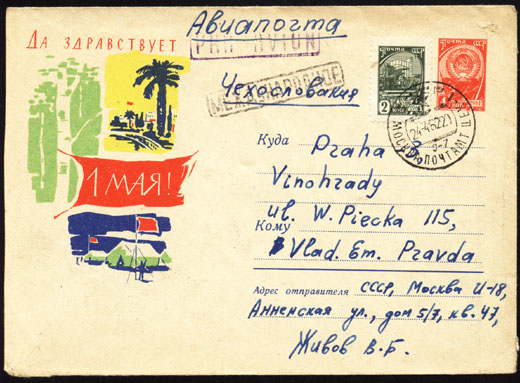 Авиапочта
PAR AVION
ДА ЗДРАВСТВУЕТ
1 МАЯ!
МЕЖДУНАРОДНОЕ
Чехословакия
ПОЧТА СССР
2
КОП
ПОЧТА СССР
МОСКВА ПОЧТАМТ
Куда Praha
Vinohrady
ul. W. Piecka 115,
Кому
Vlad. Em. Pravda
Адрес отправителя СССР, Москва И-18,
Анненская ул., дом 5/7, кв. 47,
Живов В.Б.